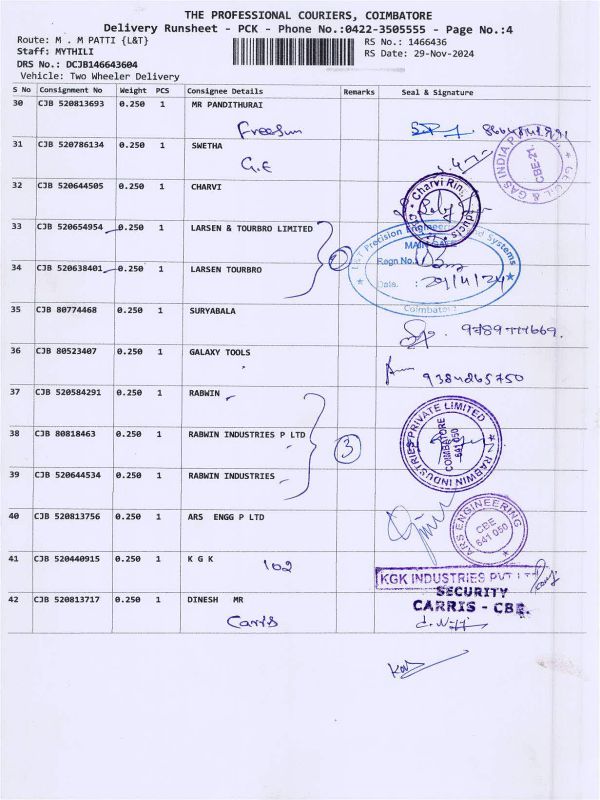 THE PROFESSIONAL COURIERS, COIMBATORE
Delivery Runsheet - PCK - Phone No.:0422-3505555 - Page No.:4
Route: M . M PATTI {L&T} RS No.: 1466436
Staff: MYTHILI RS Date: 29-Nov-2024
DRS No.: DCJB146643604
Vehicle: Two Wheeler Delivery
S No Consignment No Weight PCS Consignee Details Remarks Seal & Signature
30 CJB 520813693 0.250 1 MR PANDITHURAI
Freesun
31 CJB 520786134 0.250 1 SWETHA
G.E
CBE-21.
32 CJB 520644505 0.250 1 CHARVI
Charvi Ring Products
33 CJB 520654954 0.250 1 LARSEN & TOURBRO LIMITED
L&T Precision Engineering and Systems
MAIN GATE
Regn No.
34 CJB 520638401 0.250 1 LARSEN TOURBRO
Date. : 29/11/24
Coimbatore
35 CJB 80774468 0.250 1 SURYABALA
36 CJB 80523407 0.250 1 GALAXY TOOLS
9384265750
37 CJB 520584291 0.250 1 RABWIN
38 CJB 80818463 0.250 1 RABWIN INDUSTRIES P LTD
3
RABWIN INDUSTRIES PRIVATE LIMITED
COIMBATORE
641 050
39 CJB 520644534 0.250 1 RABWIN INDUSTRIES
40 CJB 520813756 0.250 1 ARS ENGG P LTD
ARS ENGINEERING
CBE
641 050
41 CJB 520440915 0.250 1 K G K
102
KGK INDUSTRIES PVT LTD
42 CJB 520813717 0.250 1 DINESH MR
Carris
SECURITY
CARRIS - CBE.